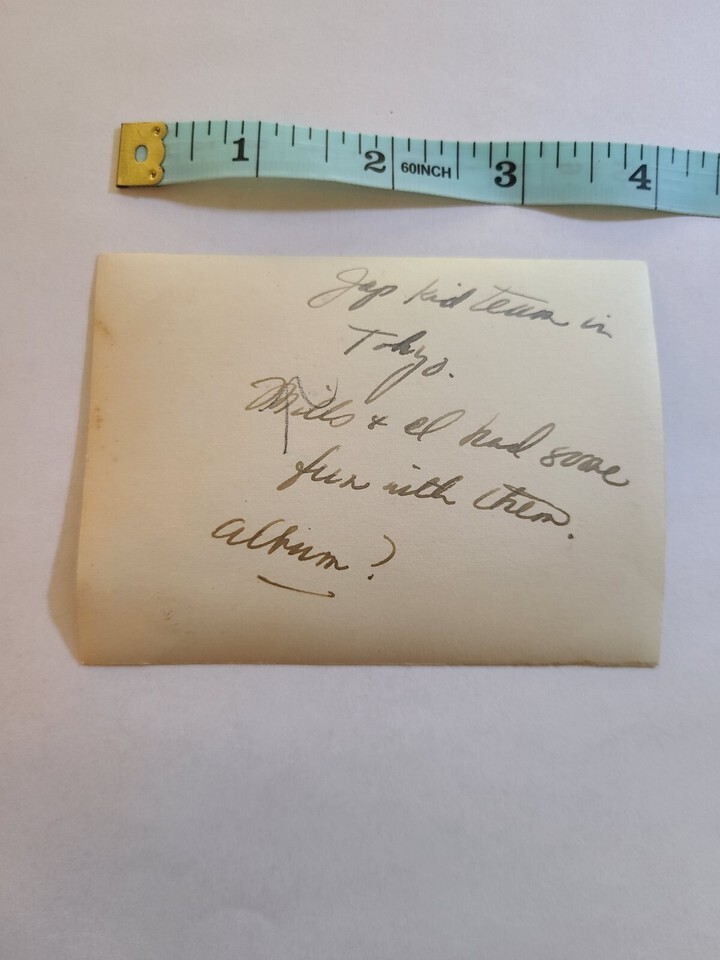 1 2 60INCH 3 4
Jap kid team in
Tokyo.
Mills & I had some
fun with them.
album?